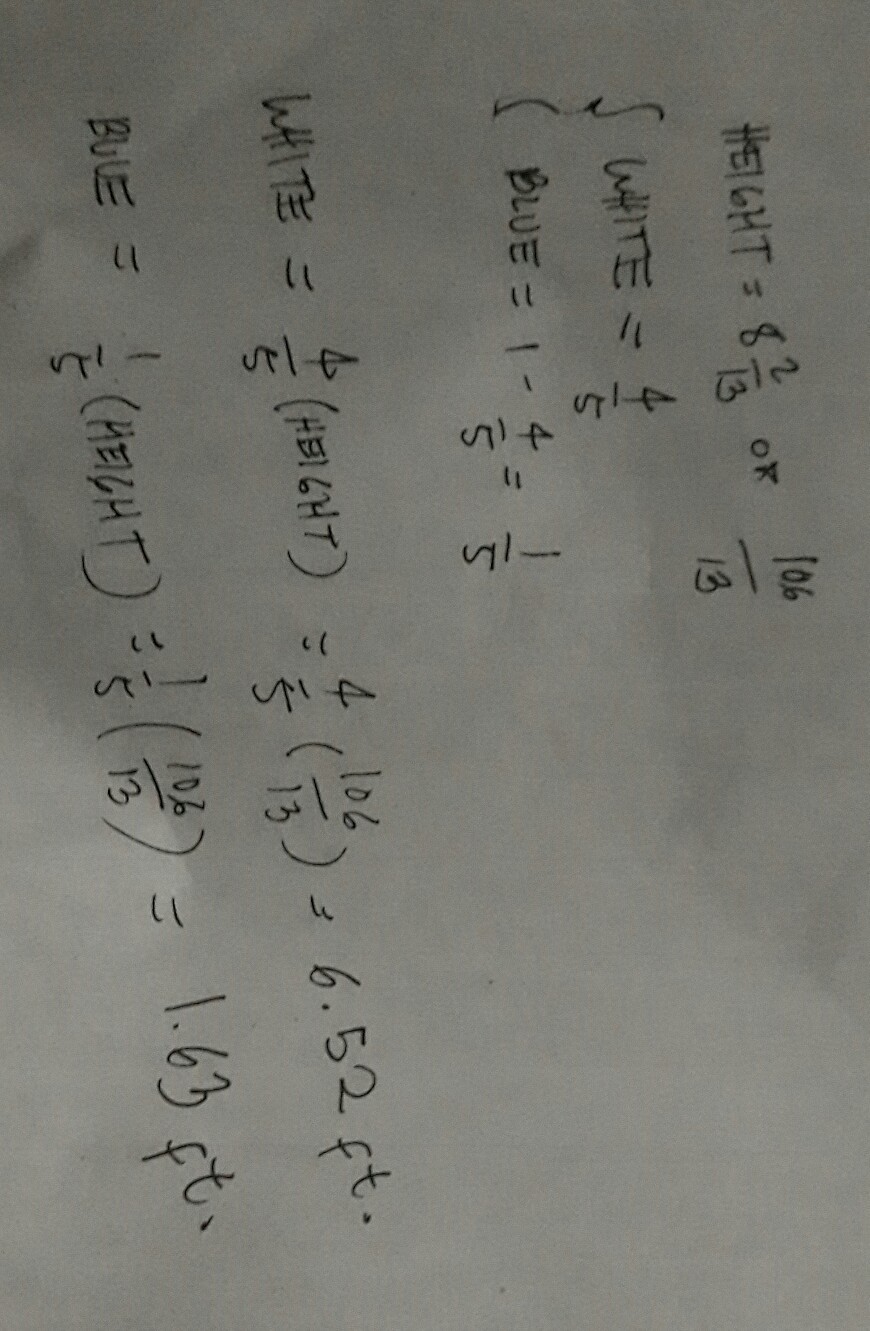 HEIGHT = 8 2/13 or 106/13
{ WHITE = 4/5
{ BLUE = 1 - 4/5 = 1/5
WHITE = 4/5 (HEIGHT) = 4/5 (106/13) = 6.52 ft.
BLUE = 1/5 (HEIGHT) = 1/5 (106/13) = 1.63 ft.